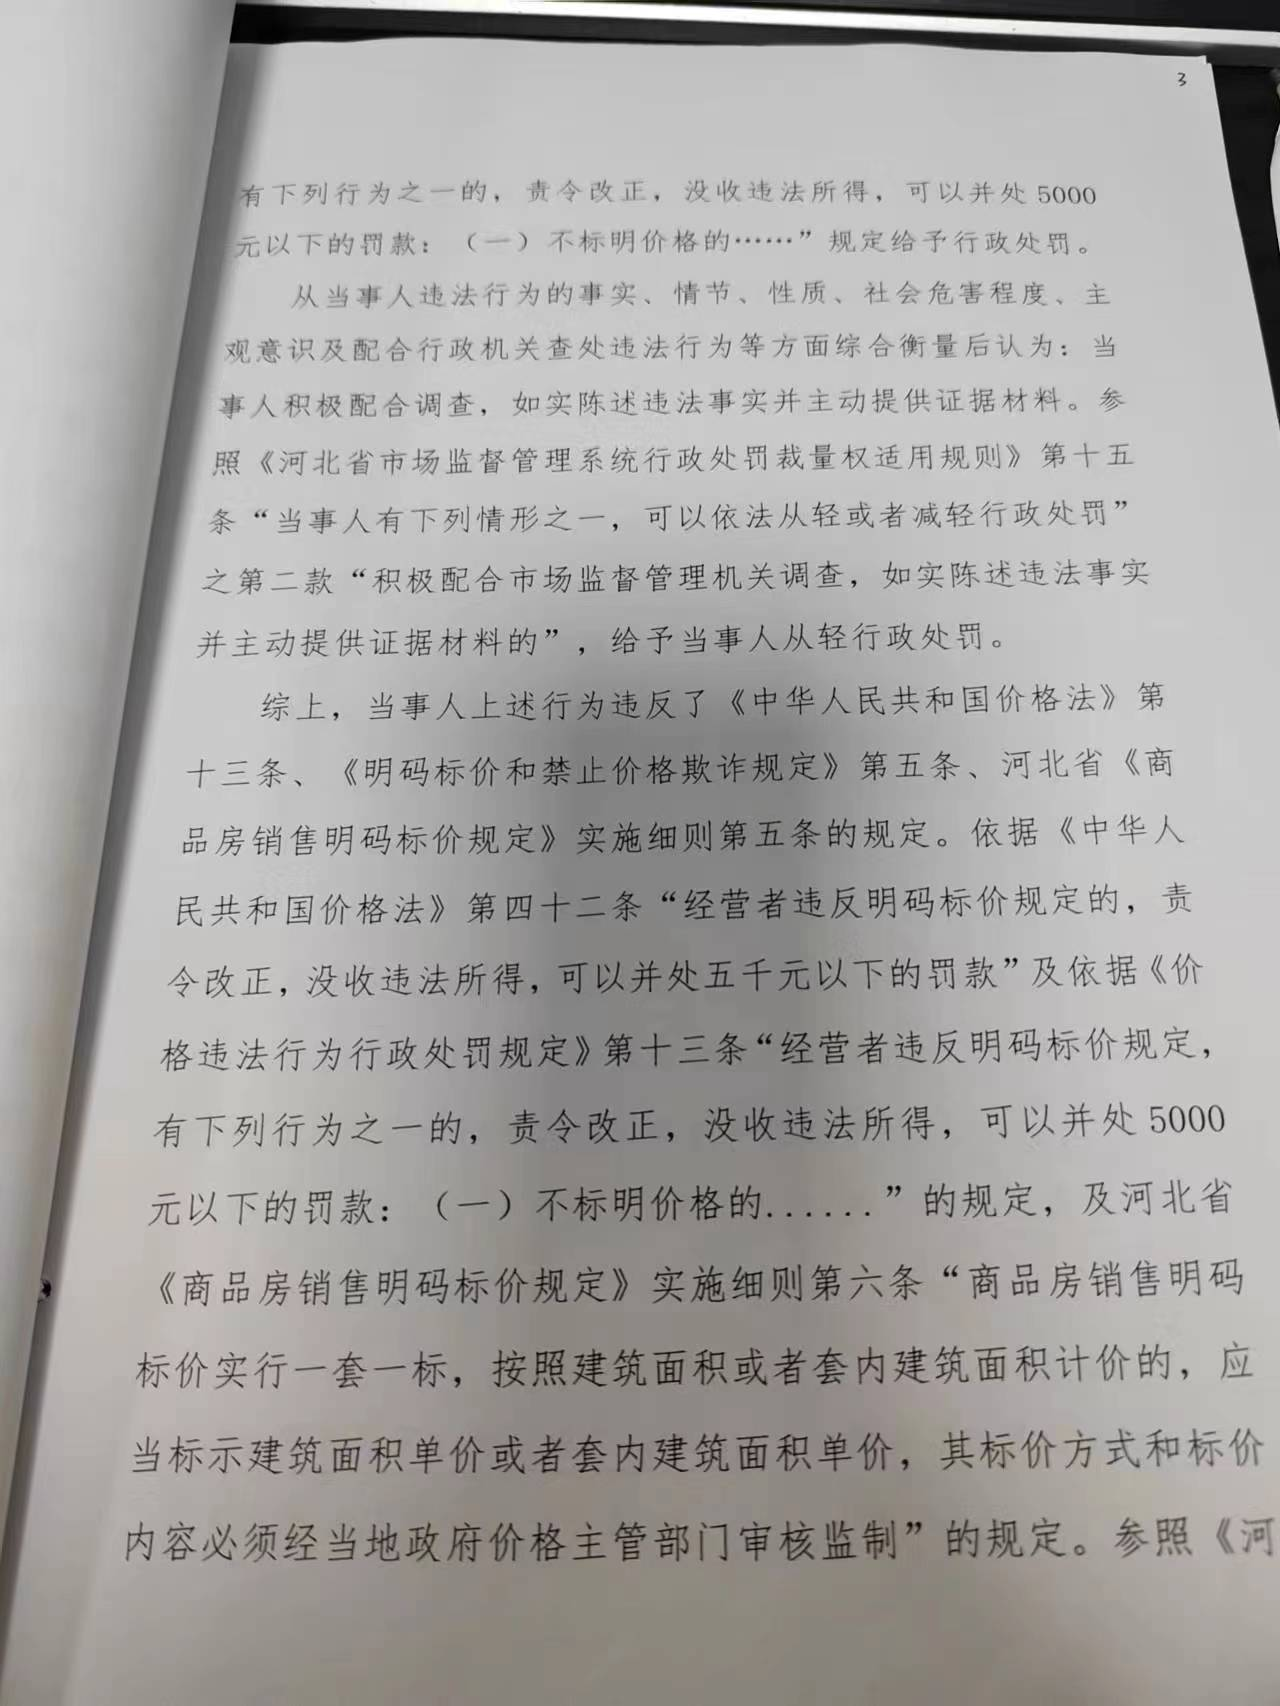 3
有下列行为之一的，责令改正，没收违法所得，可以并处 5000
元以下的罚款：（一）不标明价格的……”规定给予行政处罚。
从当事人违法行为的事实、情节、性质、社会危害程度、主
观意识及配合行政机关查处违法行为等方面综合衡量后认为：当
事人积极配合调查，如实陈述违法事实并主动提供证据材料。参
照《河北省市场监督管理系统行政处罚裁量权适用规则》第十五
条“当事人有下列情形之一，可以依法从轻或者减轻行政处罚”
之第二款“积极配合市场监督管理机关调查，如实陈述违法事实
并主动提供证据材料的”，给予当事人从轻行政处罚。
综上，当事人上述行为违反了《中华人民共和国价格法》第
十三条、《明码标价和禁止价格欺诈规定》第五条、河北省《商
品房销售明码标价规定》实施细则第五条的规定。依据《中华人
民共和国价格法》第四十二条“经营者违反明码标价规定的，责
令改正，没收违法所得，可以并处五千元以下的罚款”及依据《价
格违法行为行政处罚规定》第十三条“经营者违反明码标价规定，
有下列行为之一的，责令改正，没收违法所得，可以并处 5000
元以下的罚款：（一）不标明价格的......”的规定，及河北省
《商品房销售明码标价规定》实施细则第六条“商品房销售明码
标价实行一套一标，按照建筑面积或者套内建筑面积计价的，应
当标示建筑面积单价或者套内建筑面积单价，其标价方式和标价
内容必须经当地政府价格主管部门审核监制”的规定。参照《河